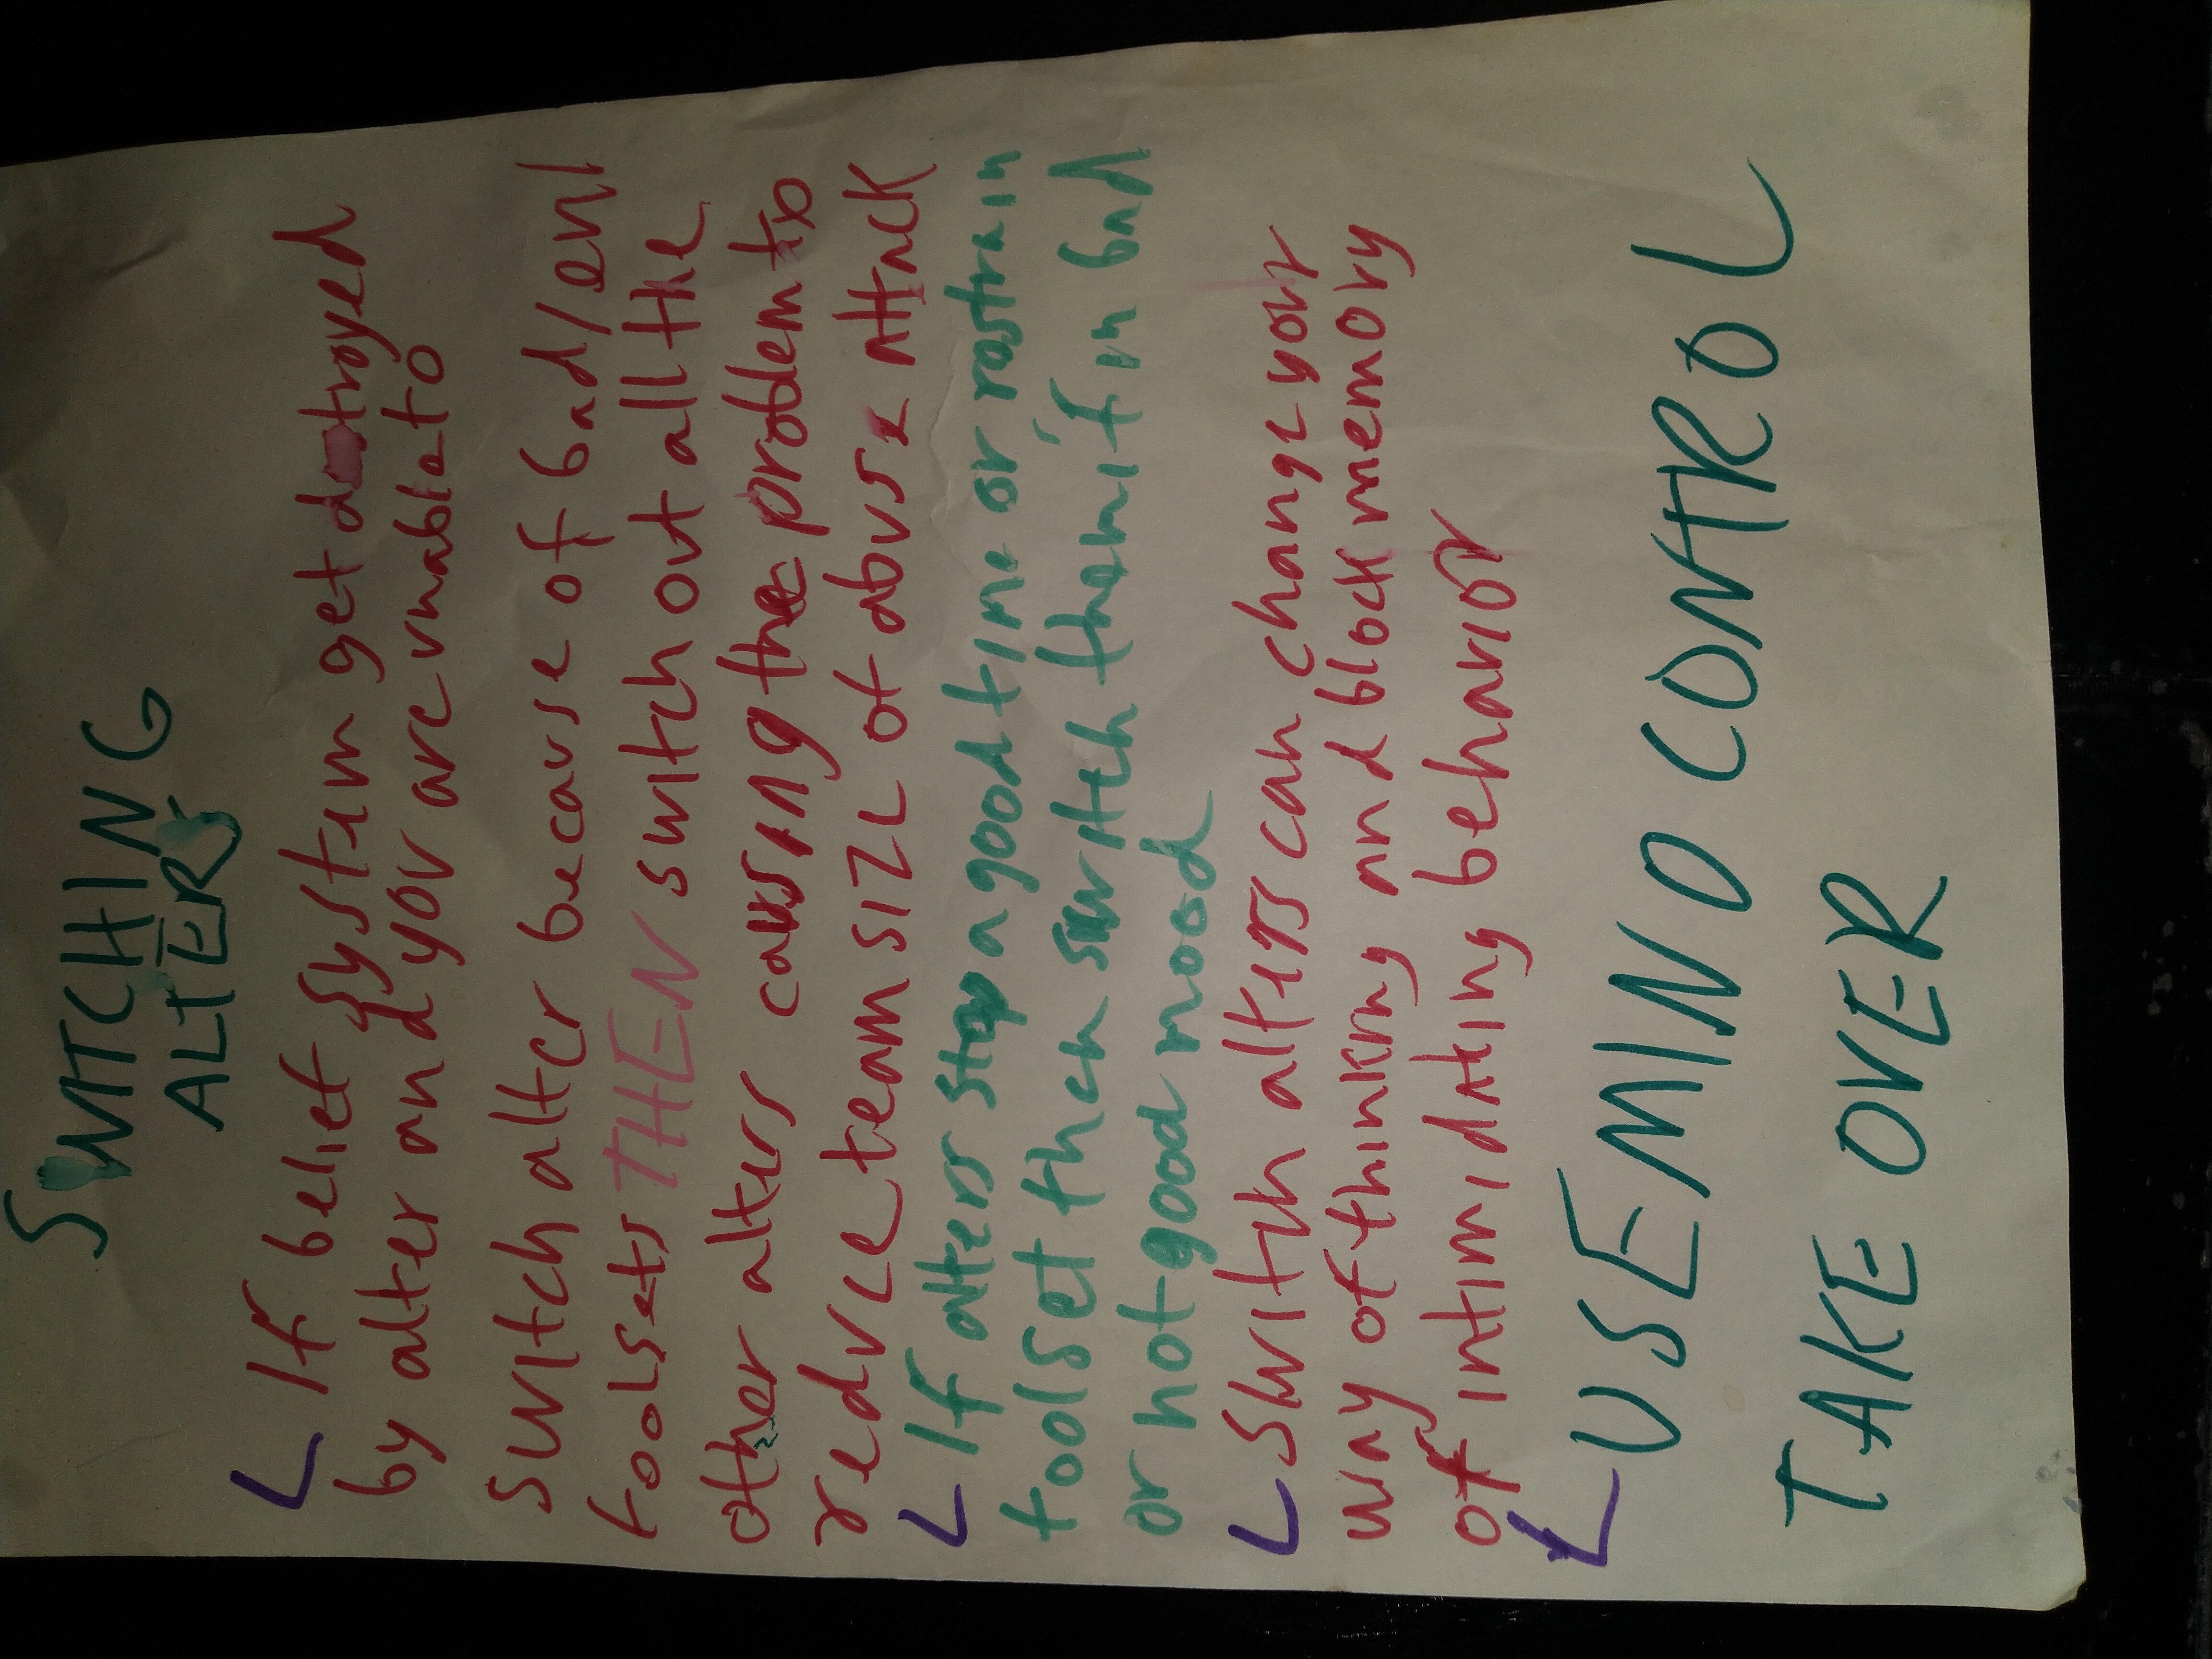 SWITCHING
ALTERS
If belief system get dotroyed
by alter and you are unable to
switch alter because of bad/evil
toolsets THEN switch out all the
other alters causing the problem to
reduce team size of abuse attack
If alters stop a good time or rostrain
tool set then switch them if in bad
or not good mood
Swith alters can change your
way of thinking and block memory
of intimidating behavior
USE MIND CONTROL
TAKE OVER